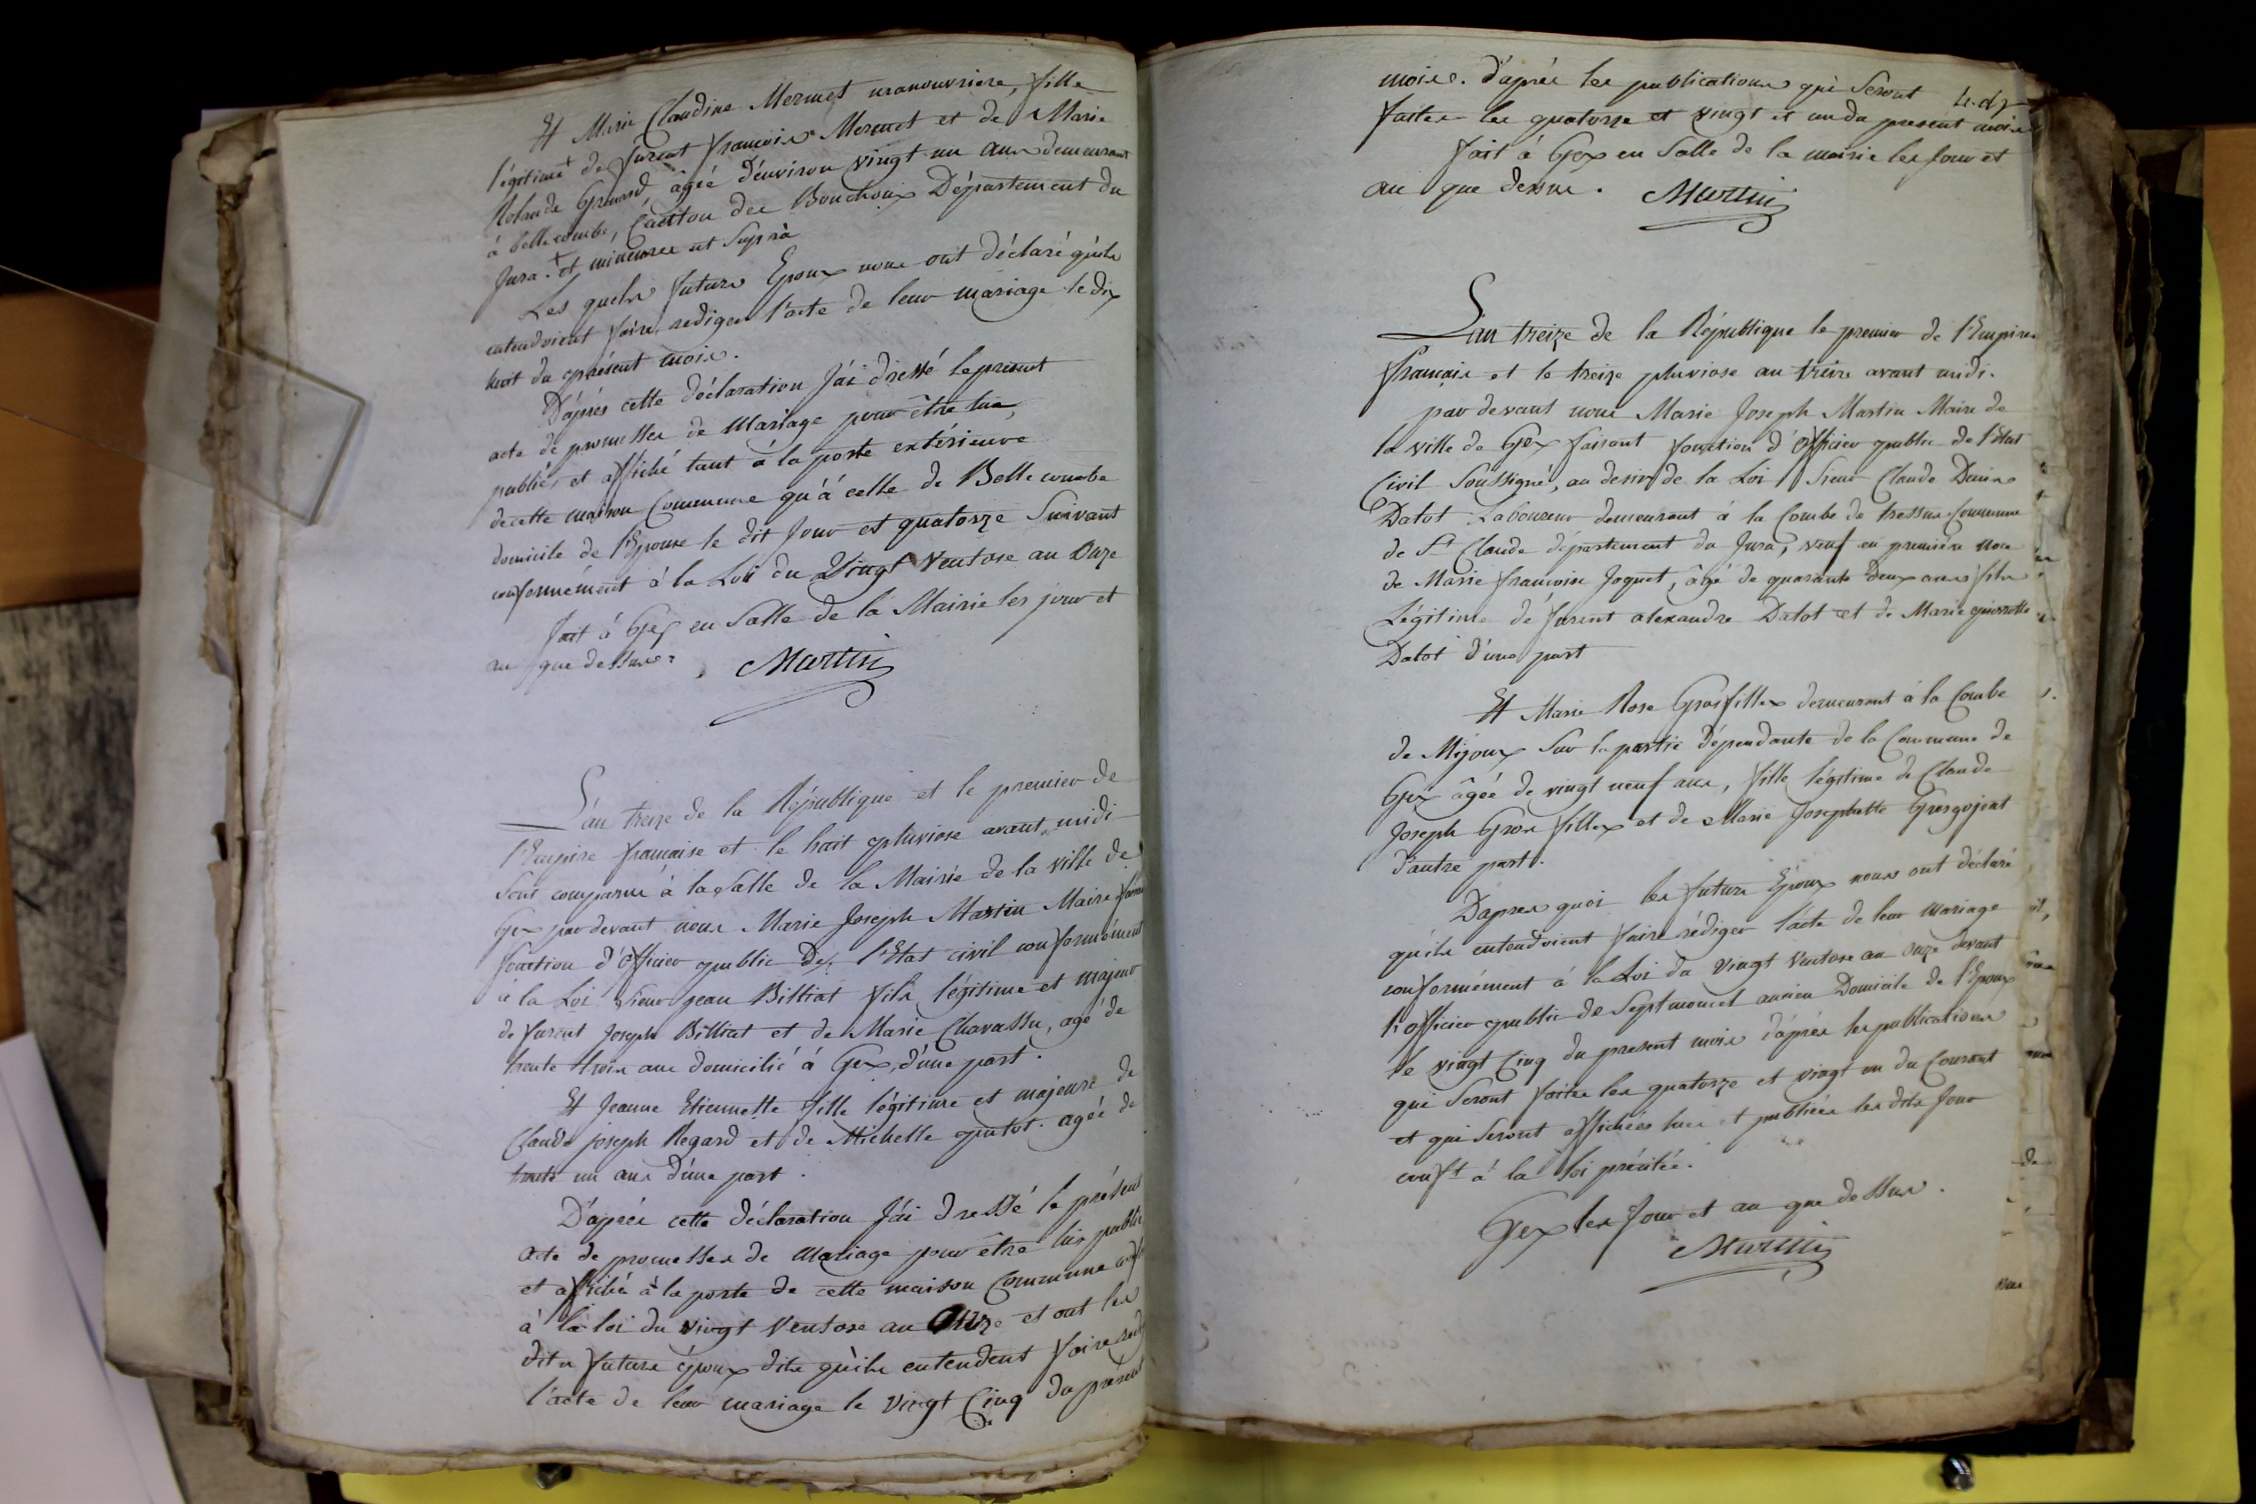 Et Marie Claudine Mermet manouvriere, fille
légitime + de furent françois Mermet et de Marie
Rolande Grenard âgée d'environ vingt un ans demeurant
à bellecombe, Canton des Bouchoux Département du
Jura. + et mineure ut Suprà
Les quels futurs Epoux nous ont déclaré qu'ils
entendoient faire rediger l'acte de leur mariage le dix
huit du présent mois.
D'après cette déclaration J'ai dressé le présent
acte de promesses de Mariage pour être lue,
publié, et affiché tant à la porte extérieure
de cette maison Commune qu'à celle de Bellecombe
domicile de l'Epouse le dit Jour et quatorze Suivant
conformément à la Loi du Vingt Ventose an Onze
fait à Gex en Salle de la Mairie les jour et
an que dessus.
Martin
L'an treize de la République et le premier de
l'Empire française et le huit pluviose avant midi
Sont comparu à la Salle de la Mairie de la ville de
Gex par devant nous Marie Joseph Martin Maire
fonction d'officier public De l'Etat civil conformément
à la Loi Sieur jean Billiat fils légitime et majeur
de furent Joseph Billiat et de Marie Chavassu, agé de
trente trois ans domicilié à Gex, d'une part.
Et Jeanne Etiennette fille légitime et majeure de
Claude joseph Regard et de Michelle putot. agée de
trente un ans d'une part.
D'après cette déclaration J'ai dressé le présent
acte de promesses de mariage pour être lu, publié
et affiché à la porte de cette maison Commune
à la loi du vingt Ventose an Onze et ont les
dits futurs époux dits qu'ils entendent faire
l'acte de leur mariage le vingt Cinq du présent
mois. d'après les publications qui Seront
faites les quatorze et vingt et un du present mois
fait à Gex en Salle de la mairie les Jour et
an que dessus.
Martin
L'an treize de la République le premier de l'Empire
français et le treize pluviose an treize avant midi.
par devant nous Marie Joseph Martin Maire de
la ville de Gex faisant fonction d'Officier public de l'Etat
Civil Soussigné, au desir de la Loi Sieur Claude
Dalot Laboureur demeurant à la Combe de tressus Commune
de St Claude département du Jura, veuf en première noce
de Marie françoise Joquet, âgé de quarante deux ans fils
Légitime de furent alexandre Dalot et de Marie pierrette
Dalot d'une part
Et Marie Rose Grosfillex demeurant à la Combe
de Mijoux Sur la partie dépendante de la Commune de
Gex âgée de vingt neuf ans, fille légitime de Claude
Joseph Gros fillex et de Marie Josephatte Grosgojeat
d'autre part.
D'apres quoi les futurs Epoux nous ont déclaré
qu'ils entendoient faire rédiger l'acte de leur mariage
conformément à la Loi du vingt Ventose an Onze devant
l'officier public de Septmoncel ancien Domicile de l'Epoux
le vingt Cinq du present mois d'après les publications
qui Seront faites les quatorze et vingt un du Courant
et qui Seront affichées lues et publiées les dits Jour
conft à la loi précitée.
Gex les Jour et an que dessus.
Martin